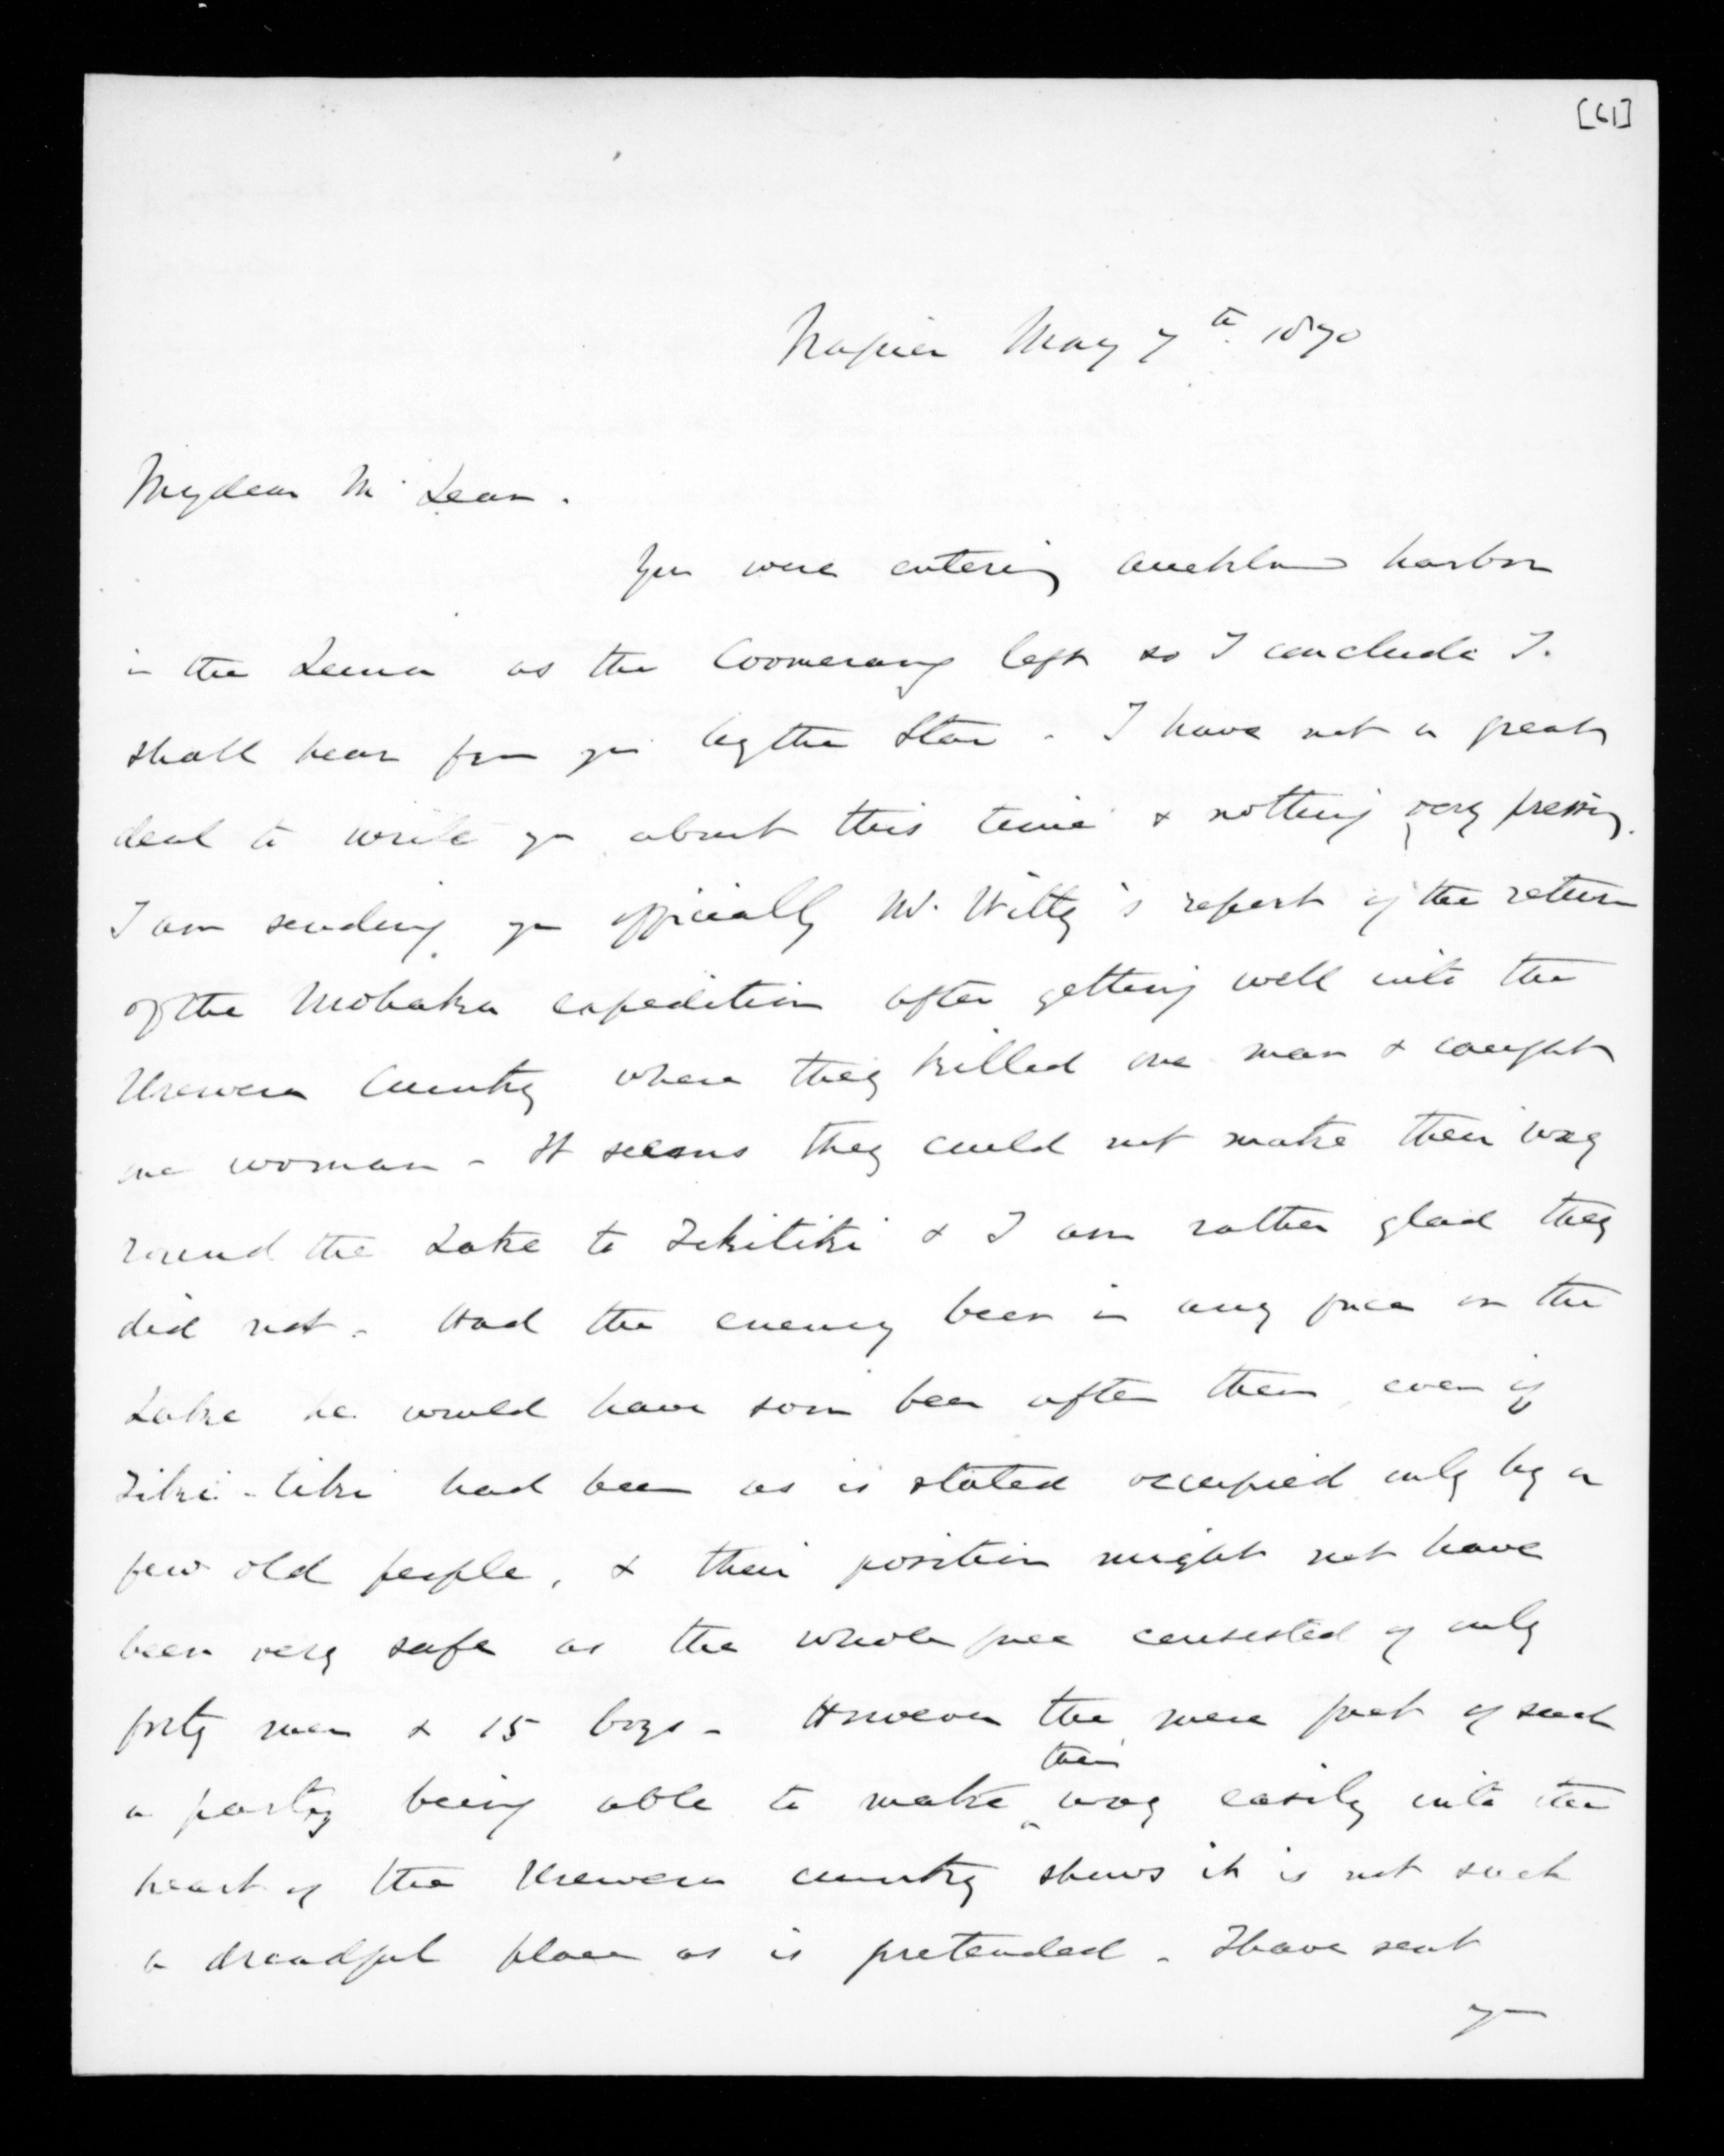 [61]
Napier May 7th. 1870
My dear McLean.
You were entering Auckland harbor
in the Luna as the Boomerang left so I conclude I
shall hear from you by the Star. I have not a great
deal to write you about this time & nothing very pressing.
I am sending you officially Mr. Witty's report of the return
of the Mohaka expedition after getting well into the
Urewera Country where they killed one man & caught
one woman - It seems they could not make their way
round the Lake to Tikitiki & I am rather glad they
did not. Had the enemy been in any force on the
Lake he would have soon been after them even if
Tiki-tiki had been as is stated occupied only by a
few old people, & their position might not have
been very safe as the whole force consisted of only
forty men & 15 boys - However the mere fact of such
a party being able to make their way easily into the
heart of the Urewera country shews it is not such
a dreadful place as is pretended. I have sent
you